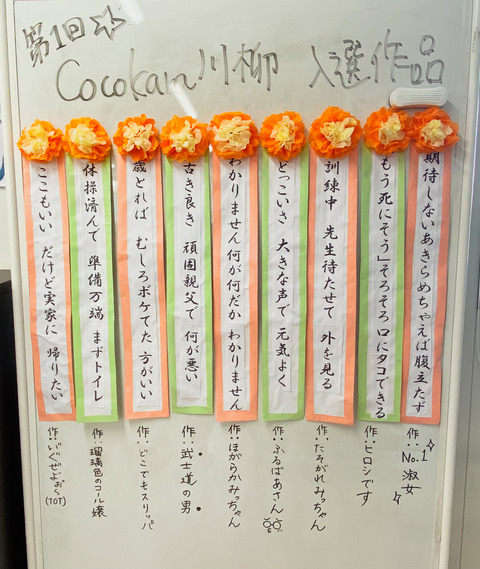 第1回
Cocokan川柳 入選作品
期待しないあきらめちゃえば腹立たず
作:No.1淑女
もう死にそう」そろそろ口にタコできる
作:ヒロシです
訓練中 先生待たせて 外を見る
作:たそがれみっちゃん
どっこいさ 大きな声で 元気よく
作:ふるばあさん
わかりません何が何だか わかりません
作:ほがらかみっちゃん
古き良き 頑固親父で 何が悪い
作:武士道の男
歳とれば むしろボケてた 方がいい
作:どこでもスリッパ
体操済んで 準備万端 まずトイレ
作:瑠璃色のコール嬢
ここもいい だけど実家に 帰りたい
作:いぐぜよぉら
(TOT)